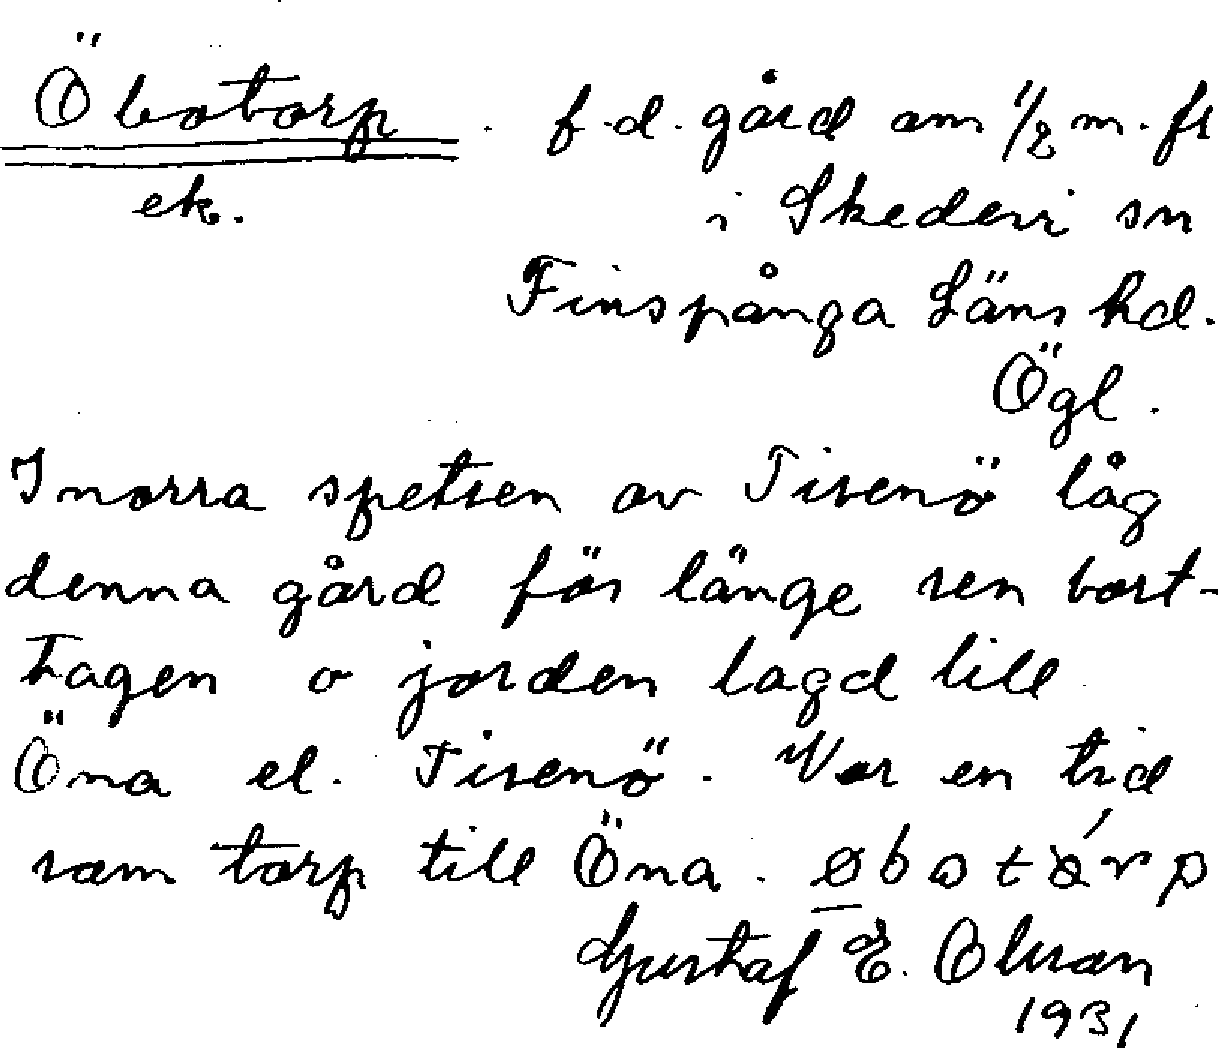 Öbotorp. f.d. gård om 1/2 m. fr
ek. i Skedevi sn
Finspånga Läns hd.
Ögl.
I norra spetsen av Tisenö låg
denna gård för länge sen bort-
tagen o jorden lagd till
Öna el. Tisenö. Var en tid
som torp till Öna.
Gustaf E. Olsson
1931